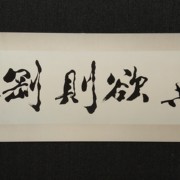 欲則剛